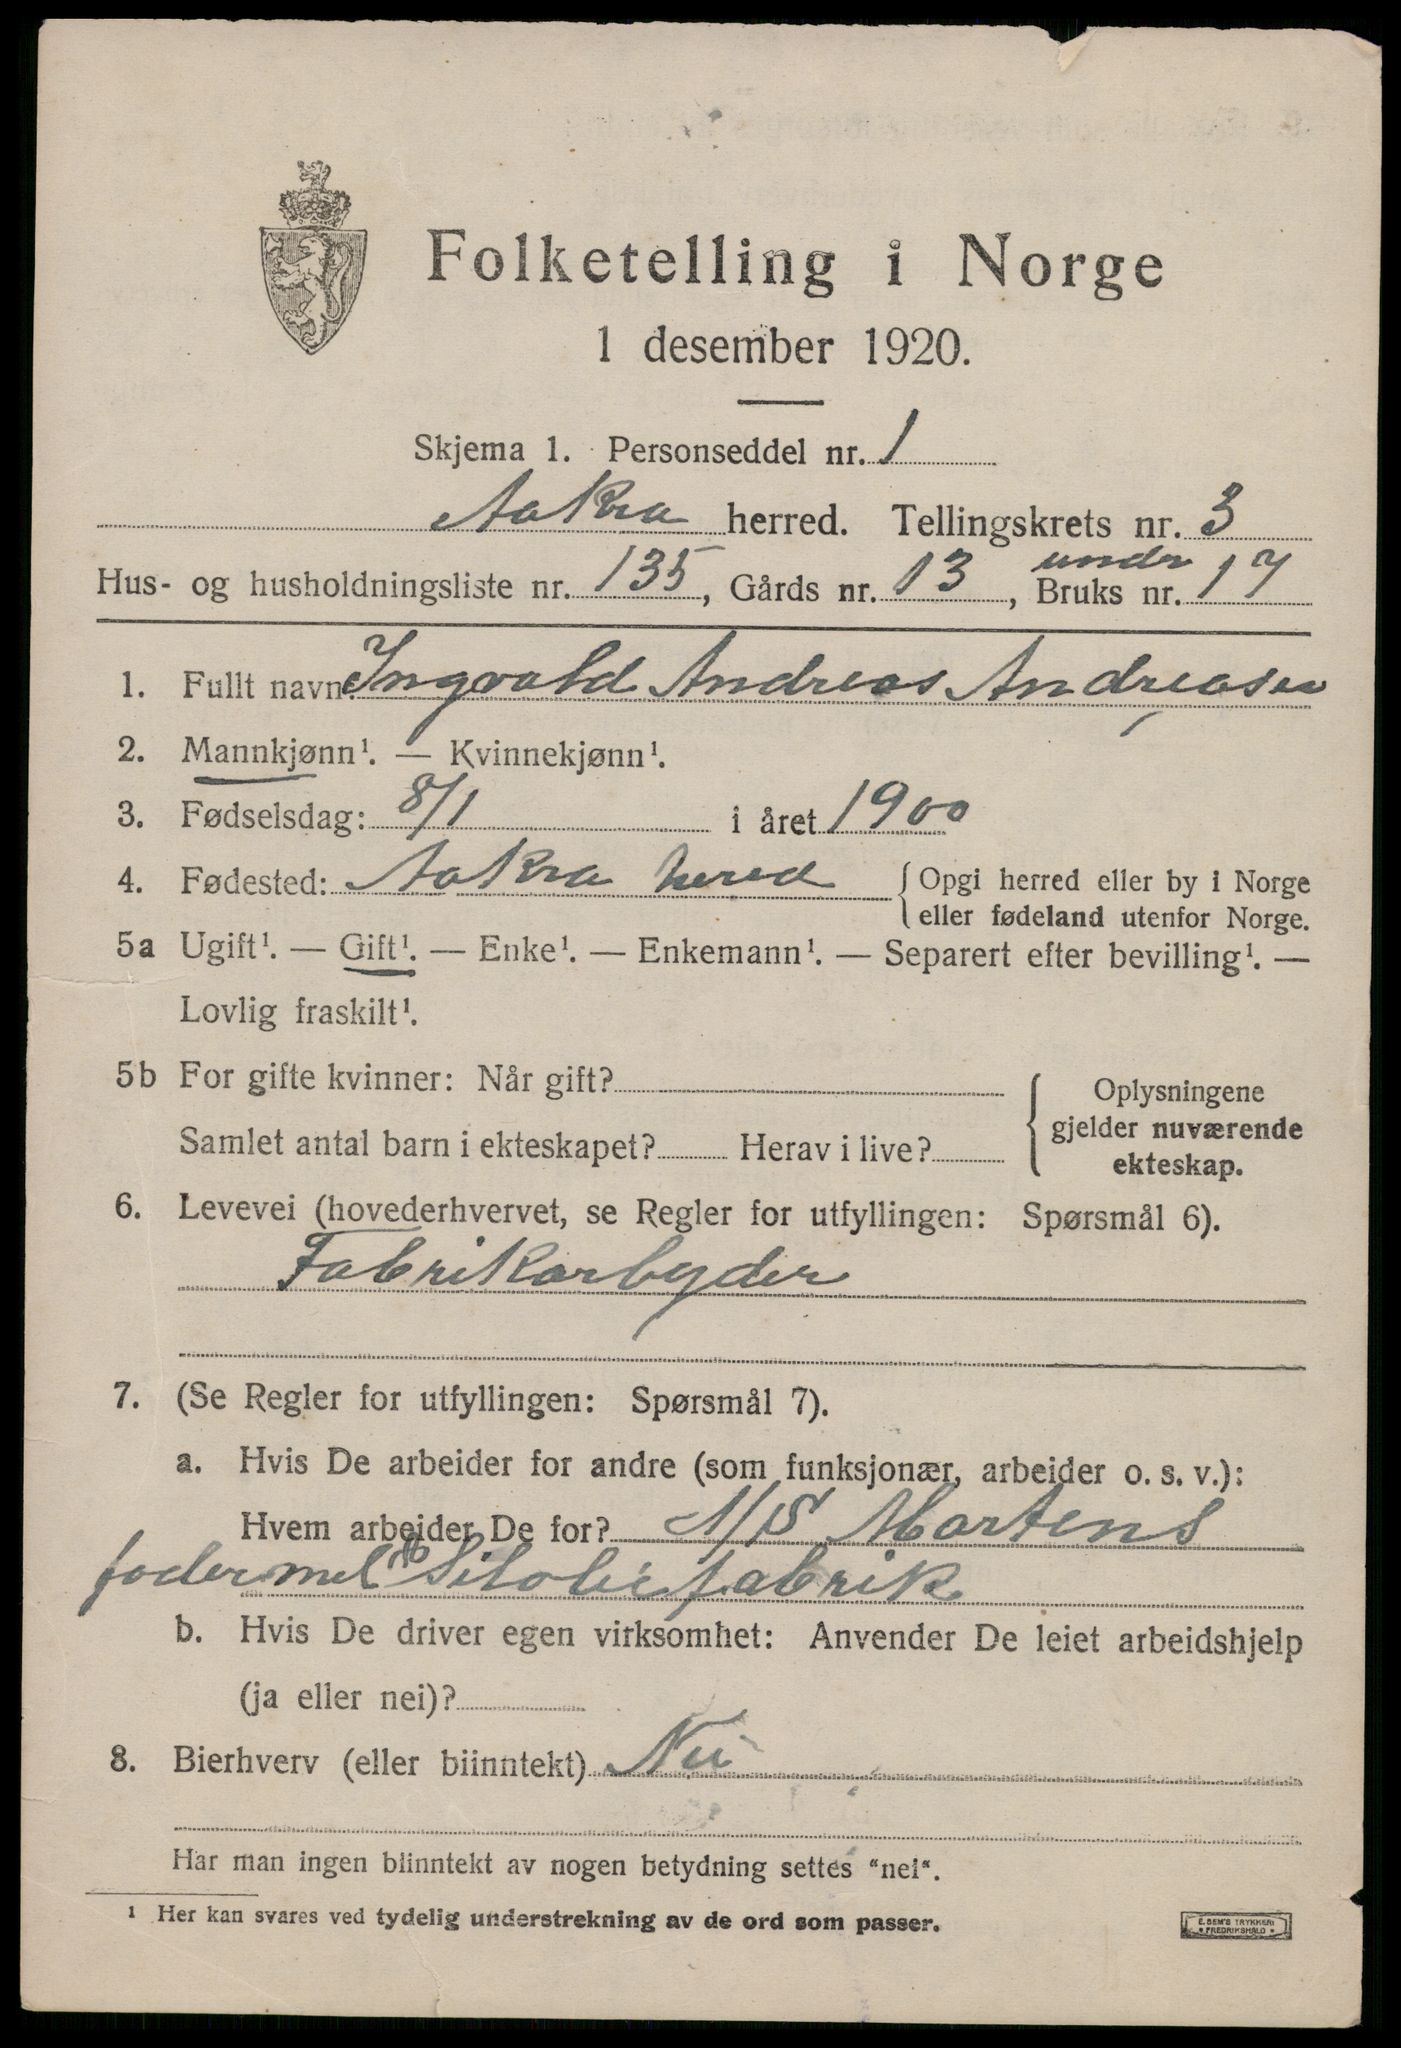 Folketelling i Norge
1 desember 1920.
Skjema 1. Personseddel nr. 1
Aakra herred. Tellingskrets nr. 3
Hus- og husholdningsliste nr. 135, Gårds nr. 13, undr Bruks nr. 17
1. Fullt navn: Ingvald Andreas Andreasen
2. Mannkjønn¹. — Kvinnekjønn¹.
3. Fødselsdag: 8/1 i året 1900
4. Fødested: Aakra herred { Opgi herred eller by i Norge
eller fødeland utenfor Norge.
5a Ugift¹. — Gift¹. — Enke¹. — Enkemann¹. — Separert efter bevilling¹. —
Lovlig fraskilt¹.
5b For gifte kvinner: Når gift? { Oplysningene
gjelder nuværende
Samlet antal barn i ekteskapet? Herav i live?
ekteskap.
6. Levevei (hovederhvervet, se Regler for utfyllingen: Spørsmål 6).
Fabrikarbyder
7. (Se Regler for utfyllingen: Spørsmål 7).
a. Hvis De arbeider for andre (som funksjonær, arbeider o. s. v.):
Hvem arbeider De for? A/S Mortens
fodermel fabrik
b. Hvis De driver egen virksomhet: Anvender De leiet arbeidshjelp
(ja eller nei)?
8. Bierhverv (eller biinntekt) Nei
Har man ingen biinntekt av nogen betydning settes "nei".
¹ Her kan svares ved tydelig understrekning av de ord som passer.
E. SEM'S TRYKKERI
FREDRIKSHALD